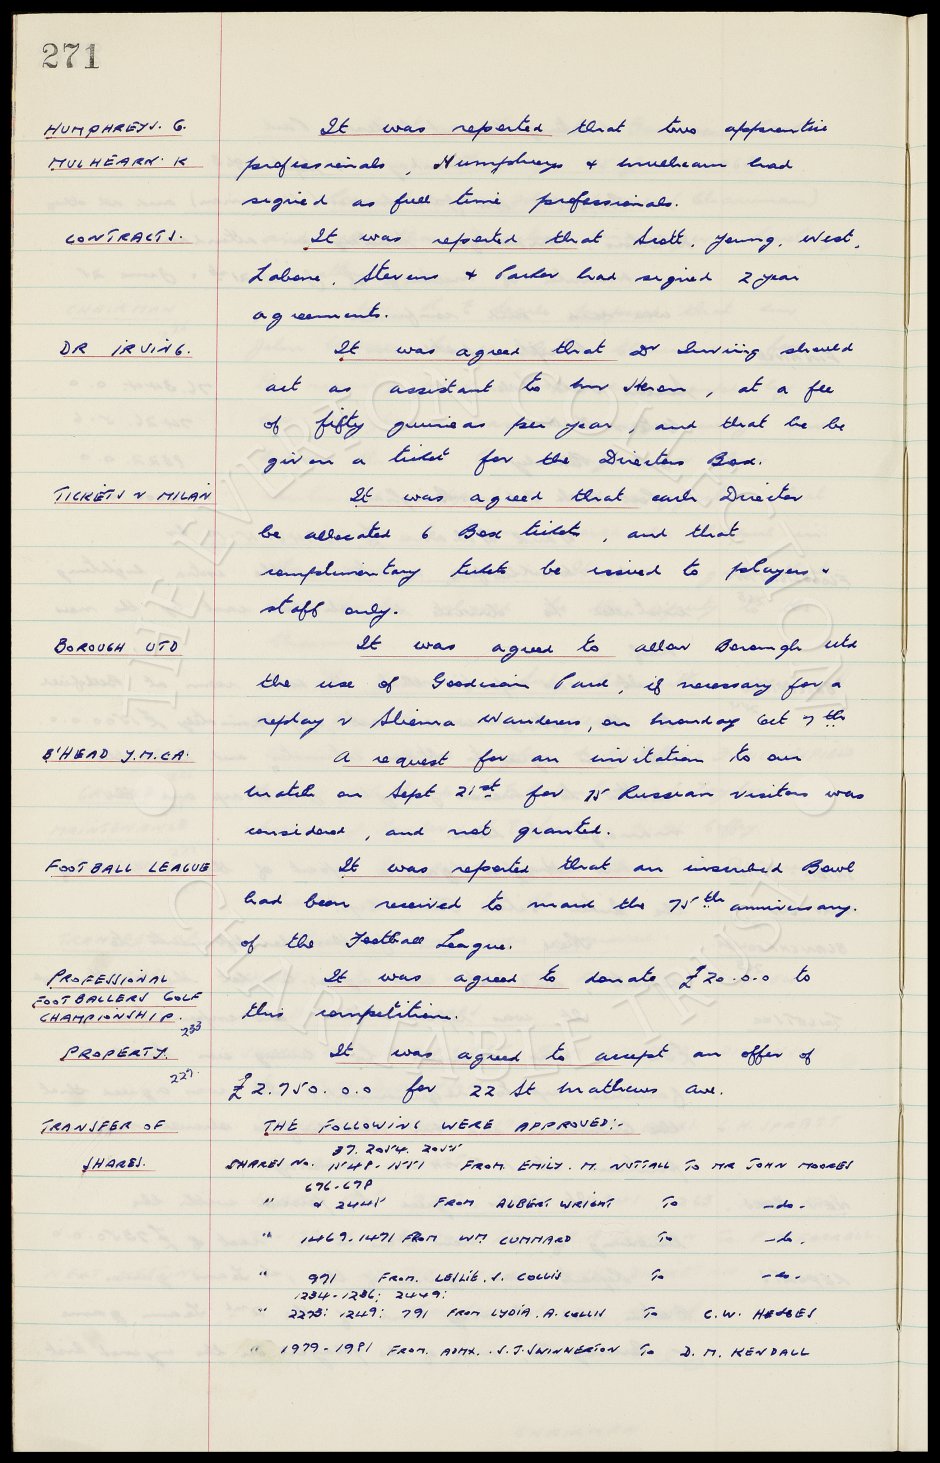 271
HUMPHREYS. G. It was reported that two apprentice
MULHEARN. K professionals, Humphreys & Mulhearn had
signed as full time professionals.
CONTRACTS. It was reported that Scott, Young, West,
Labone, Stevens & Parker had signed 2 year
agreements.
DR IRVING. It was agreed that Dr Irving should
act as assistant to Mr Heron, at a fee
of fifty guineas per year, and that he be
given a ticket for the Directors Box.
TICKETS v MILAN It was agreed that each Director
be allocated 6 Box tickets, and that
complimentary tickets be issued to players &
staff only.
BOROUGH UTD It was agreed to allow Borough Utd
the use of Goodison Park, if necessary for a
replay v Sliema Wanderers, on Monday Oct 7th
B'HEAD Y.M.C.A. A request for an invitation to our
match on Sept 21st for 75 Russian visitors was
considered, and not granted.
FOOTBALL LEAGUE It was reported that an inscribed Bowl
had been received to mark the 75th anniversary.
of the Football League.
PROFESSIONAL It was agreed to donate £20.0.0 to
FOOTBALLERS GOLF
CHAMPIONSHIP. this competition.
233
PROPERTY. It was agreed to accept an offer of
227. £2.750.0.0 for 22 St Mathews Ave.
TRANSFER OF THE FOLLOWING WERE APPROVED:-
37. 2054. 2055
SHARES. SHARES No. 1548-1551 FROM EMILY. M. NUTTALL TO MR JOHN MOORES
676-678
" & 2445 FROM ALBERT WRIGHT To -do-
" 1469-1471 FROM WM CUMMARD To -do.
" 971 FROM. LESLIE. S. COLLIS To -do-
1234-1236: 2449:
" 2273: 1249: 791 FROM LYDIA. A. COLLIS To C.W. HEDGES
" 1979-1981 FROM. ADMX. S.J. SWINNERTON To D. M. KENDALL
THE EVERTON COLLECTION
CHARITABLE TRUST